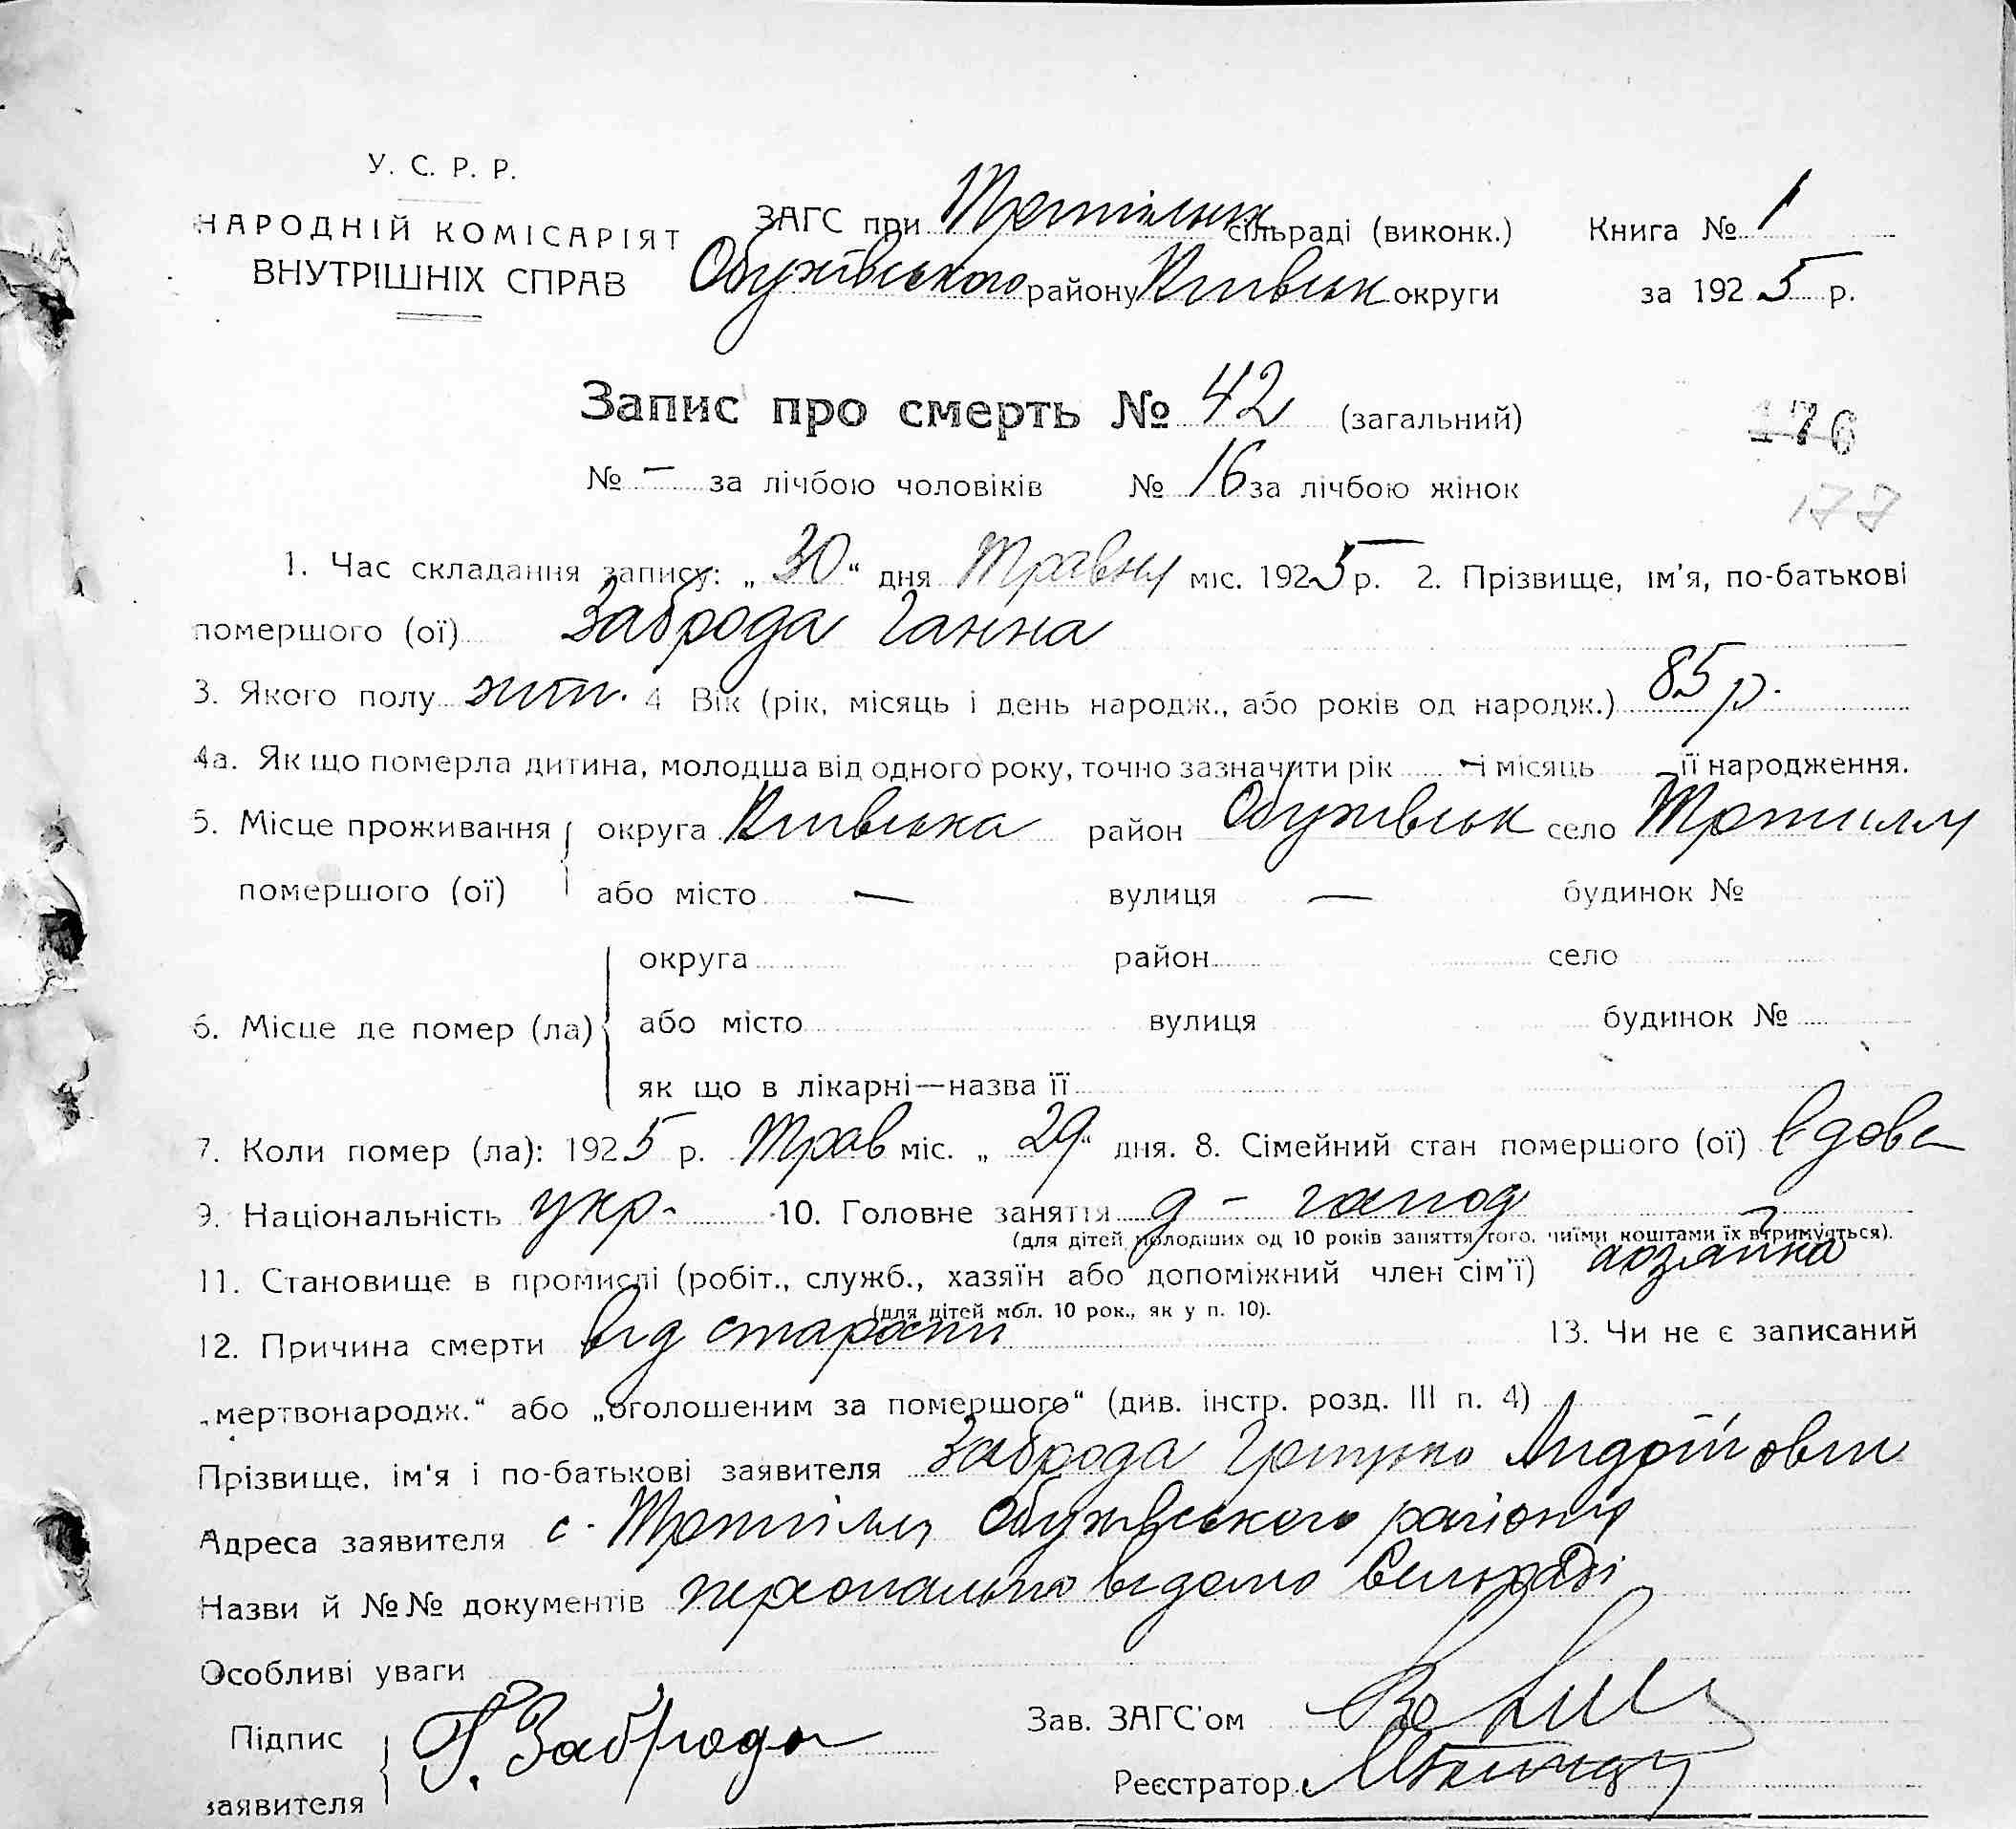 У. С. Р. Р.
НАРОДНІЙ КОМІСАРІЯТ
ВНУТРІШНІХ СПРАВ
ЗАГС при Трипільськ сільраді (виконк.) Книга № 1
Обухівського району Київськ округи за 1925 р.
Запис про смерть № 42 (загальний)
176
№ — за лічбою чоловіків № 16 за лічбою жінок
177
1. Час складання запису: „30“ дня Травня міс. 1925 р. 2. Прізвище, ім'я, по-батькові
помершого (ої) Заброда Ганна
3. Якого полу жін. 4 Вік (рік, місяць і день народж., або років од народж.) 85 р.
4а. Як що померла дитина, молодша від одного року, точно зазначити рік — і місяць — її народження.
5. Місце проживання округа Київська район Обухівськ село Трипилля
помершого (ої) або місто — вулиця — будинок №
округа район село
6. Місце де помер (ла) або місто вулиця будинок №
як що в лікарні—назва її
7. Коли помер (ла): 1925 р. Трав міс. „29“ дня. 8. Сімейний стан помершого (ої) вдова
9. Національність укр. 10. Головне заняття д - господ
(для дітей молодших од 10 років заняття того, чиїми коштами їх втримується).
11. Становище в промислі (робіт., служб., хазяїн або допоміжний член сім'ї) хозяйка
(для дітей мол. 10 рок., як у п. 10).
12. Причина смерти від старости 13. Чи не є записаний
„мертвонародж.“ або „оголошеним за помершого“ (див. інстр. розд. III п. 4)
Прізвище, ім'я і по-батькові заявителя Заброда Грицько
Адреса заявителя с. Трипілля Обухівського району
Назви й №№ документів персонально відомо Сельраді
Особливі уваги
Підпис заявителя Г. Заброда
Зав. ЗАГС'ом
Реєстратор